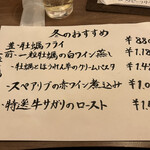 冬のおすすめ
牡蠣フライ ¥880
一粒牡蠣の白ワイン蒸し ¥1.18
・牡蠣とほうれん草のクリームパスタ ¥1.48
・スペアリブの赤ワイン煮込み ¥1.0
・特選牛サガリのロースト ¥1.